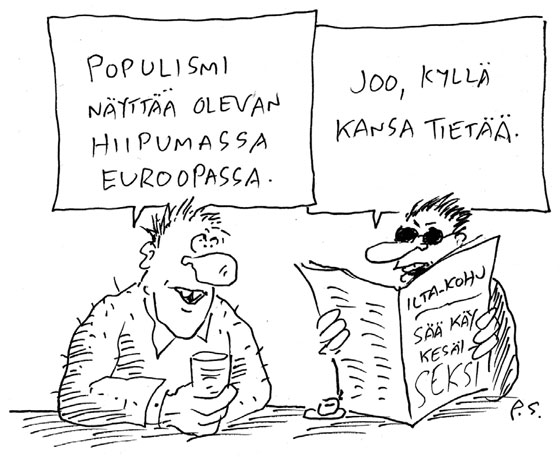 POPULISMI
NÄYTTÄÄ OLEVAN
HIIPUMASSA
EUROOPASSA.
JOO, KYLLÄ
KANSA TIETÄÄ.
ILTA-KOHU
SÄÄ KÄY
KESÄI
SEKSI
P.S.